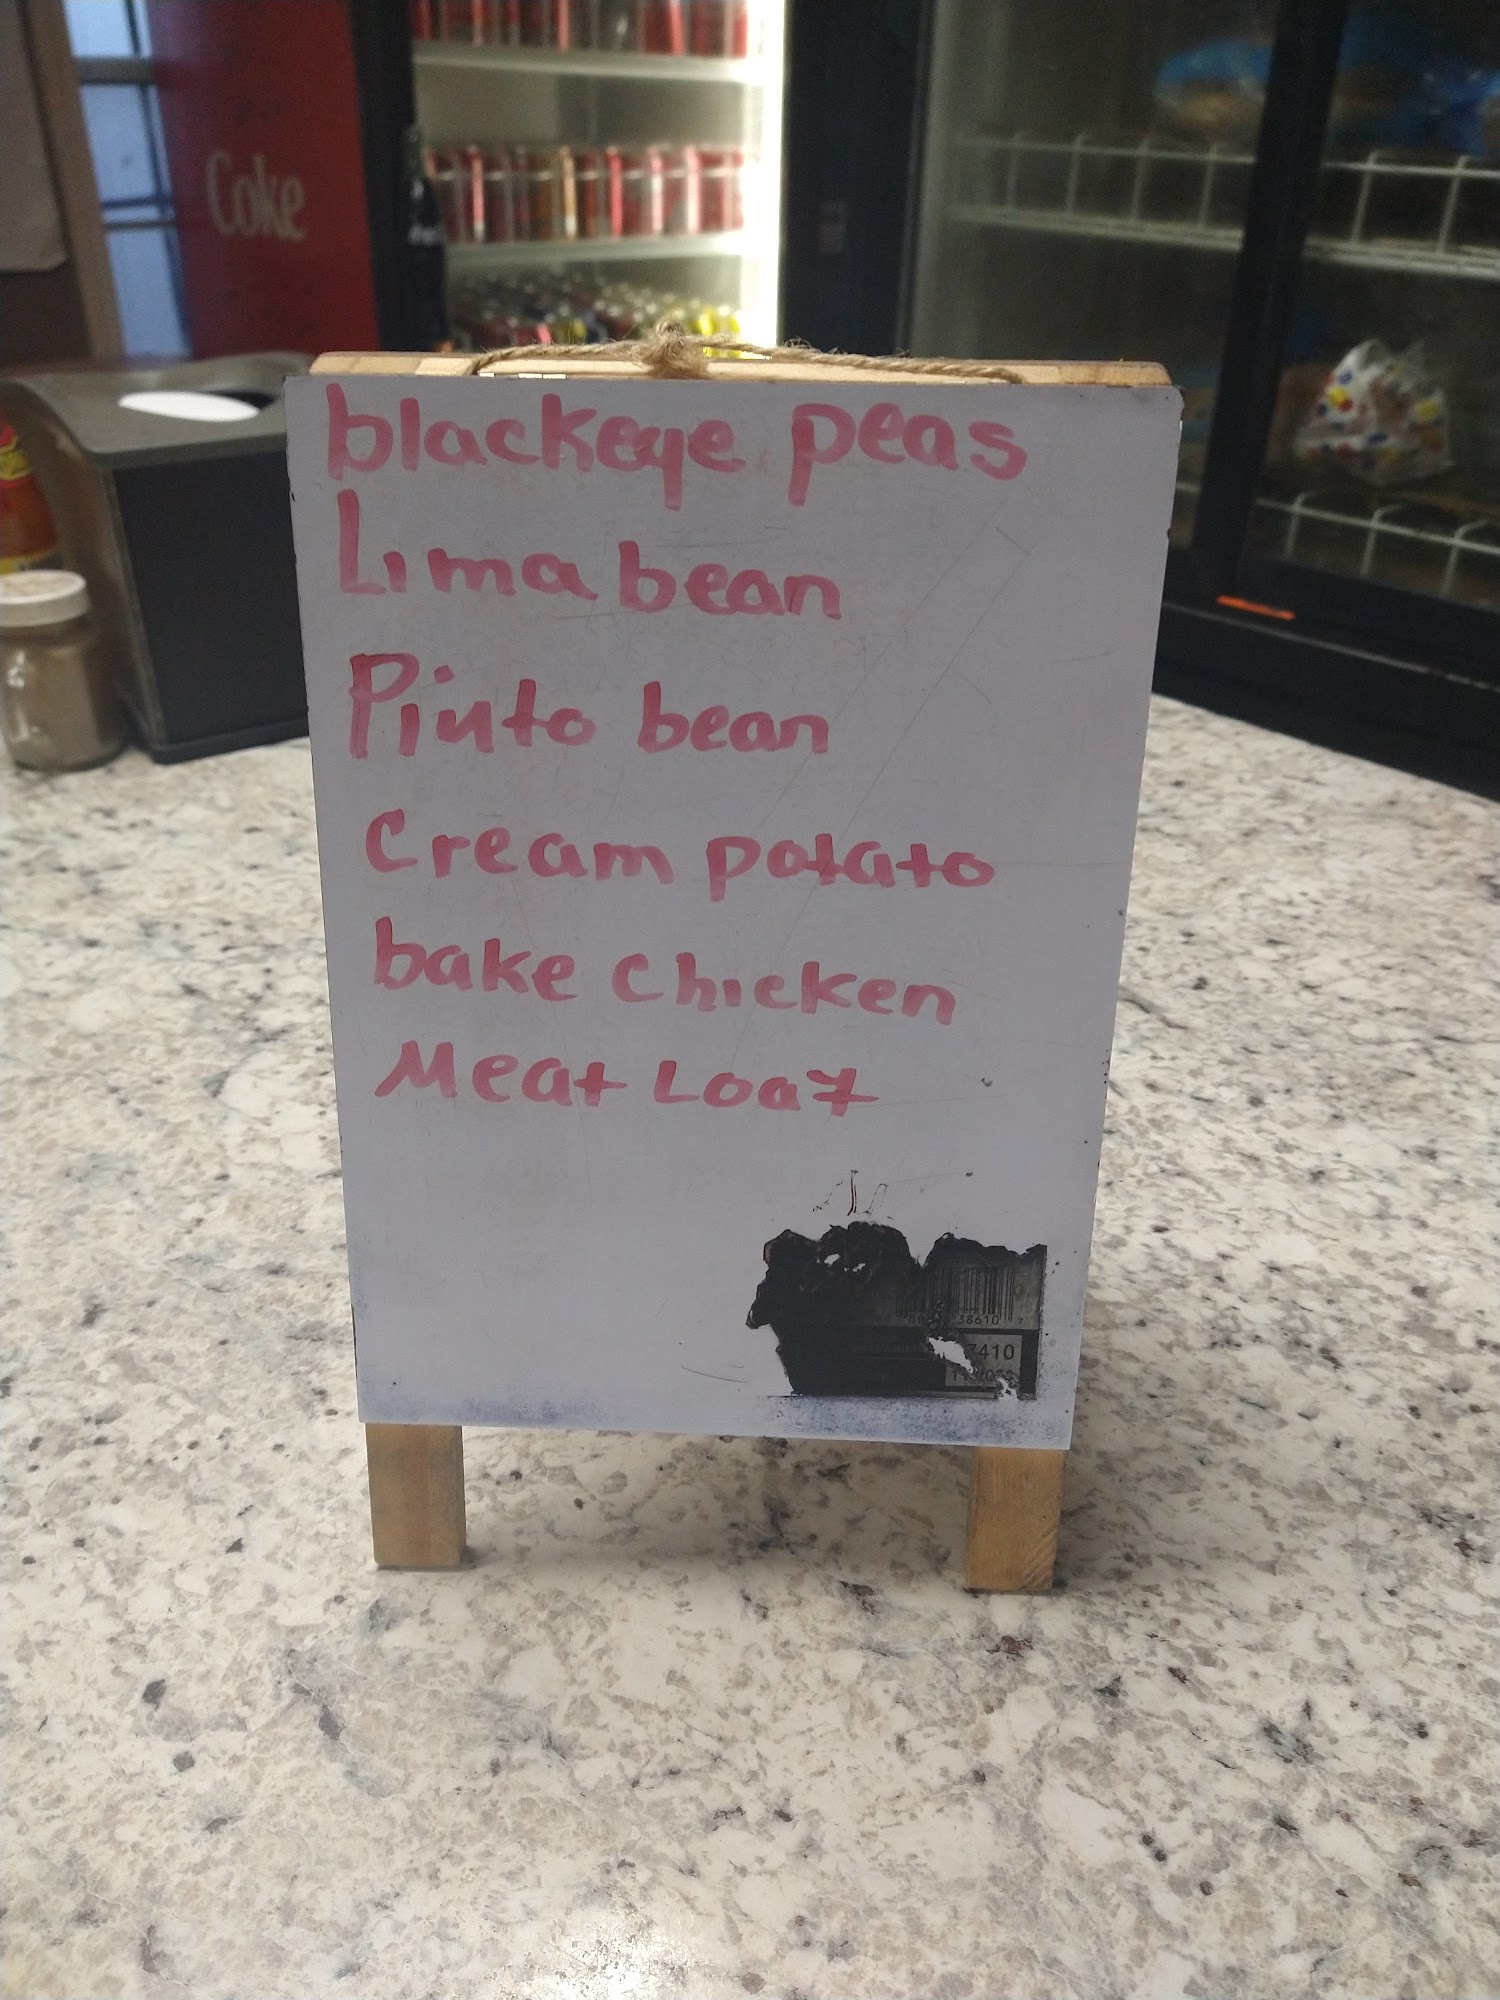 Coke
blackeye peas
Lima bean
Pinto bean
Cream potato
bake chicken
Meat Loaf
38610 7
7410